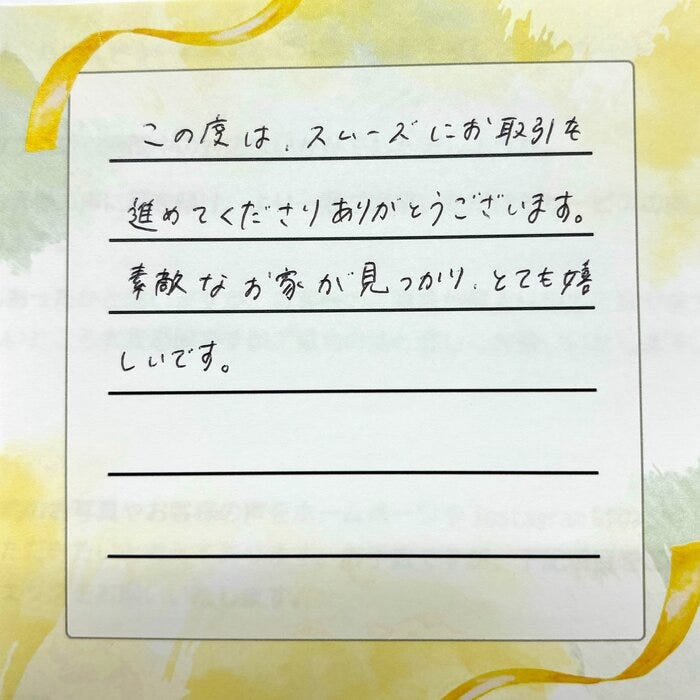 この度は、スムーズにお取引も
進めてくださりありがとうございます。
素敵なお家が見つかり、とても嬉
しいです。